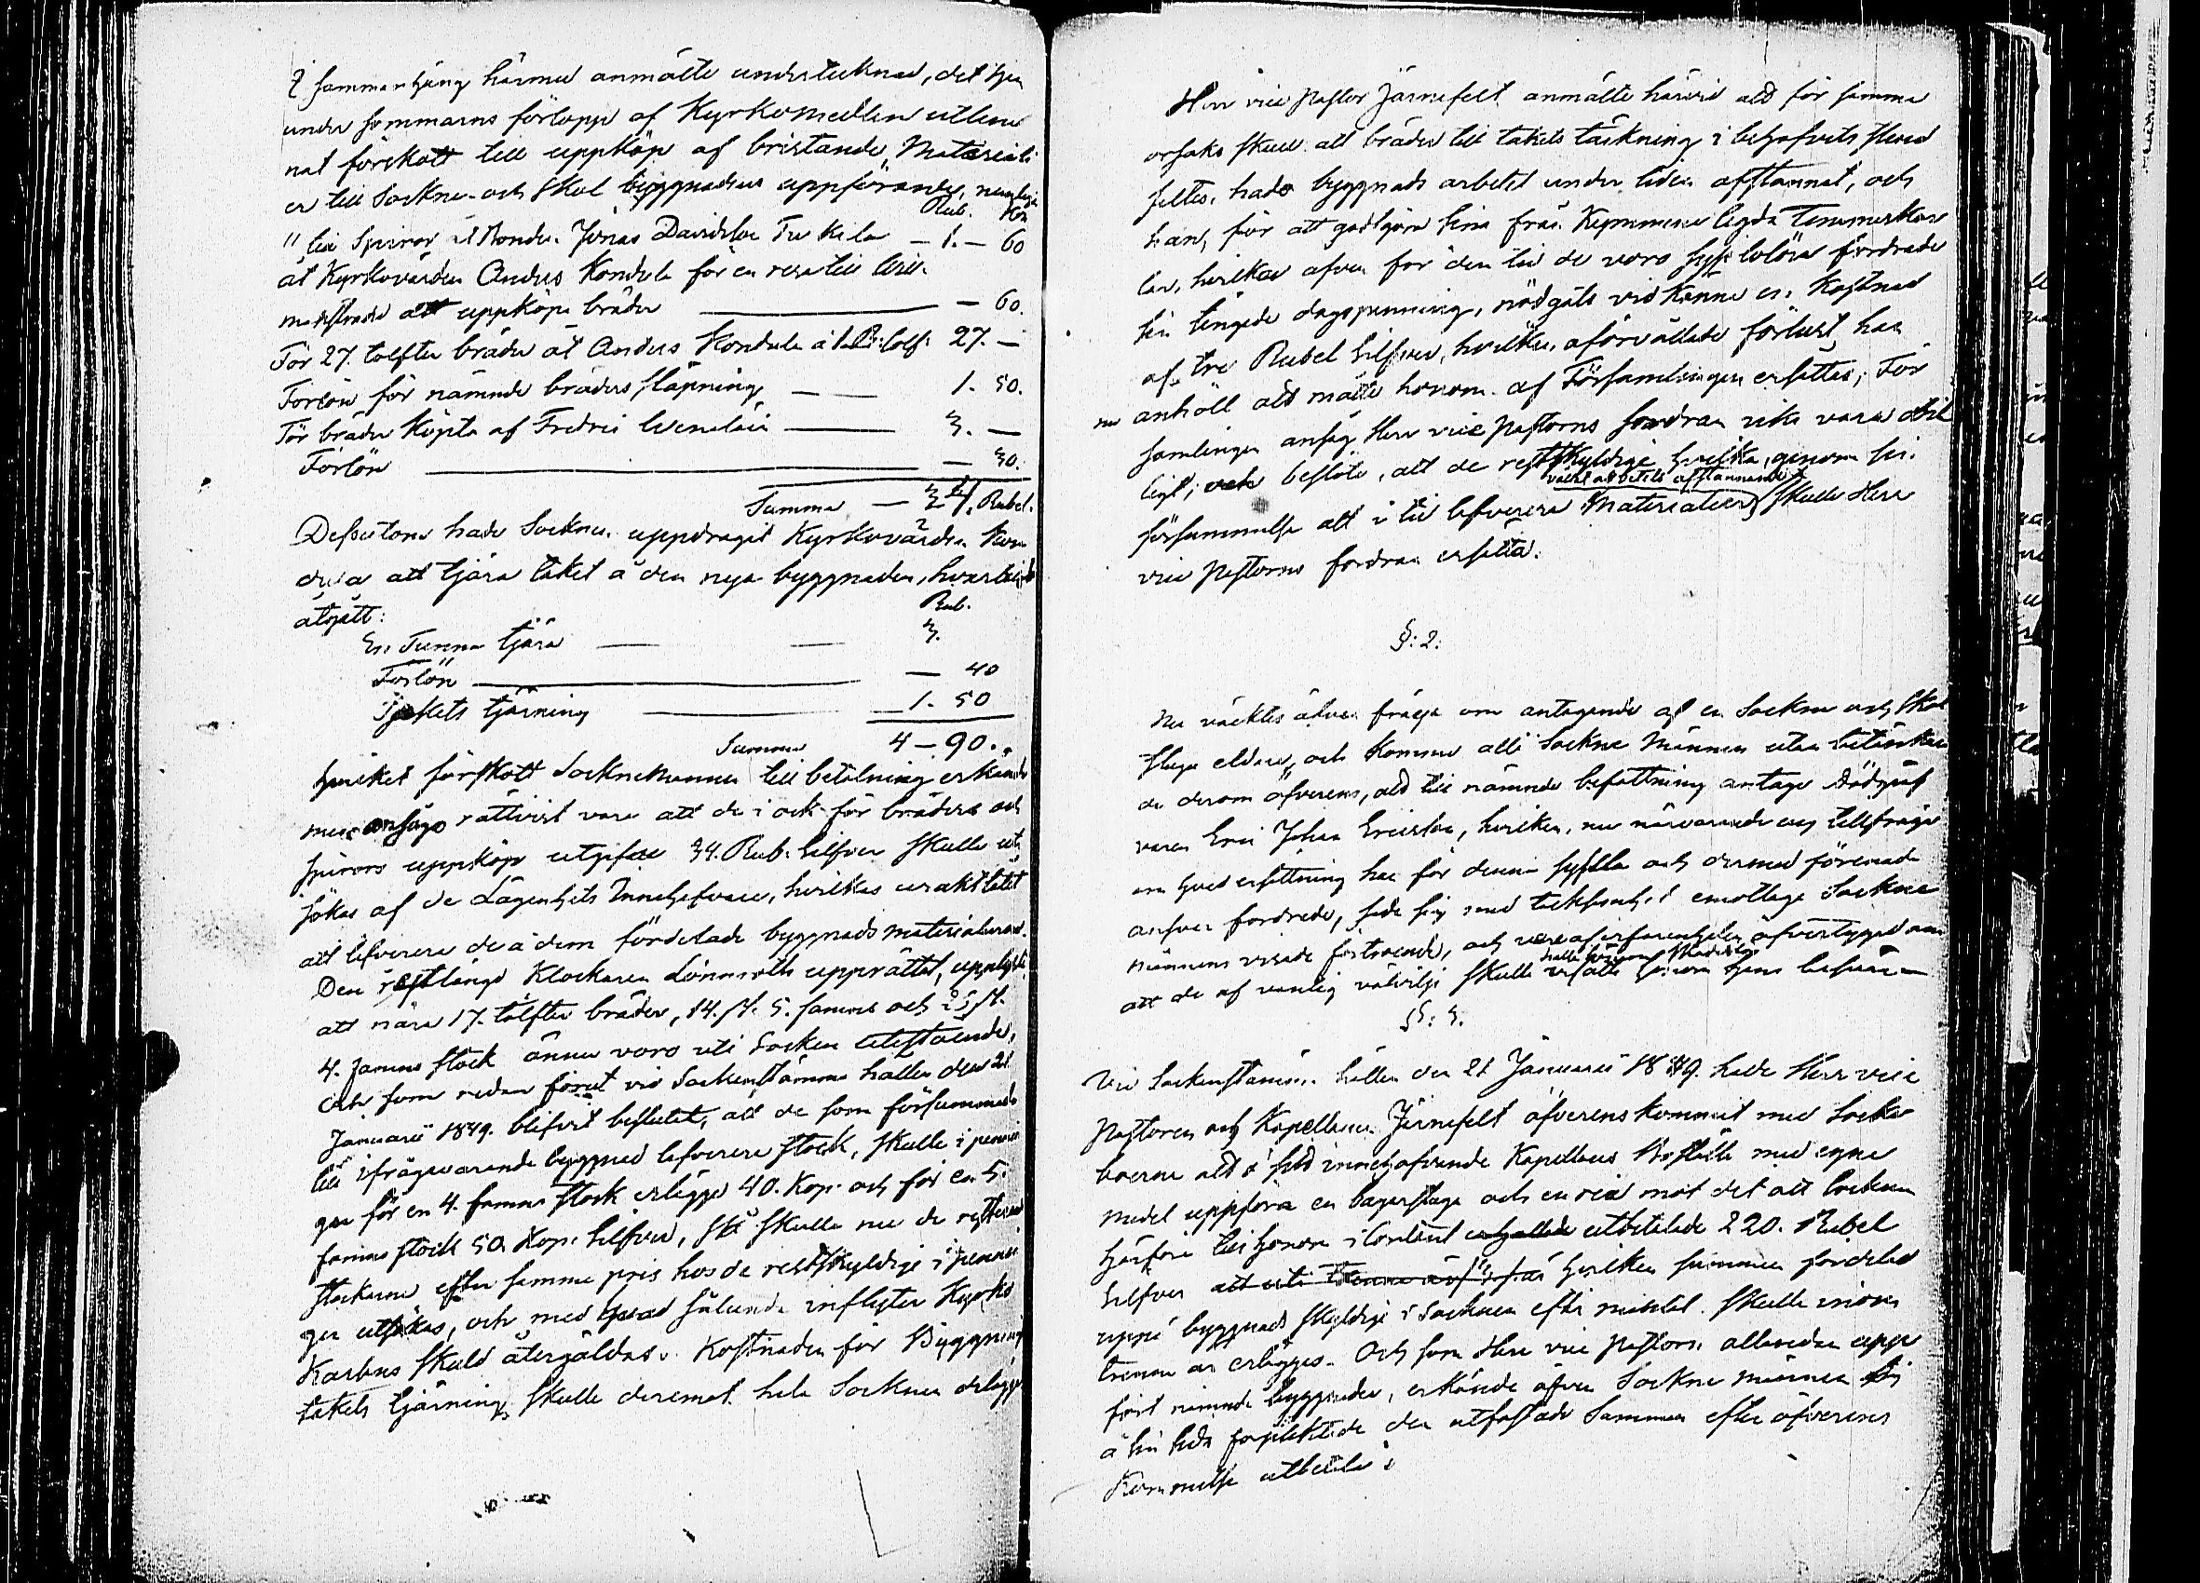 I sammanhang härmed anmälte undertecknad, det han
under sommarns förlopp af Kyrkomedlen utläm-
nat förskott till uppköp af bristande Materiali-
er till Sockne- och Skol byggnadens uppförande, nemligen
Rub. Kop.
" till Spiror åt Bonden Jonas Davidsson Tu kila — 1. — 60
åt Kyrkovärden Anders Kondula för en resa till
att uppköpa bräder — 60.
För 27. tolfter bräder åt Anders Kondula à 1. R: tolf. 27. —
Forlön för nämnde bräders släpning — 1. 50.
För bräder köpta af Fredric — 3. —
Forlön — 30.
Summa — 34. Rubel.
Dessutom hade Socknen uppdragit Kyrkovärden Kon-
dula att tjära taket å den nya byggnaden, hvartill
åtgått:
Rub.
En Tunna tjära — 3.
Forlön — 40
Takets tjärning — 1. 50
Summa 4 — 90.
hvilket förskott Socknemännen till betalning erkände
men ansågo rättvist vara att de i och för bräders och
spirors uppköp utgifne 34. Rub. Silfver skulle ut-
sökas af de Lägenhets Innehafvare, hvilkas uraktlåtit
att lefverera de å dem fördelade byggnads materialierne.
Den restlängd Klockaren Lönnroth upprättat, upplyste
att nära 17. tolfter bräder, 14. st. 5. famns och 25 st.
4. famns stock ännu voro uti Socken utestående,
och som redan förut vid Sockenstämma hållen den 21
Januarii 1849. blifvit beslutet, att de som försummade
till ifrågavarande byggnad lefverera stock, skulle i pennin-
gar för en 4. famns stock erlägga 40. Kop. och för en 5.
famns stock 50 Kop. Silfver, så skulle nu de resterande
stockarne efter samma pris hos de restskyldige i pennin-
gar utsökas, och med hvad sålunda inflyter Kyrko
Kassans skuld återgäldas. Kostnaden för Byggning
takets tjärning skulle deremot hela Socknen erlägga

Herr vice Pastor Järnefelt anmälte härvid att för samma
orsaks skull att bräder till takets täckning i behofvets stund
feltes, hade byggnads arbetet under tiden afstannat, och
han, för att godtgöra sina från Kymmene legda Timmerkar-
lar, hvilka äfven för den tid de voro sysslolösa fordrade
sin tingade dagspenning, nödgats vidkänna en Kostnad
af tre Rubel Silfver, hvilken oförvållade förlust han
nu anhöll att måtte honom af Församlingen ersättas; För
samlingen ansåg Herr vice Pastorns fordran icke vara obil
ligt; och beslöto, att de restskyldige hvilka, genom sin
vållat arbetets afstannande
försummelse att i tid lefverera Materialier skulle Herr
vice Pastorns fordran ersätta.
§: 2:
Nu väcktes äfven fråga om antagande af en Sockne och Skol
stuga eldare, och komma alle Sockne Männen utan betänkan
de derom öfverens, att till nämnde befattning antaga Dödgräf
varen Eric Johan Ericsson, hvilken, nu närvarande och tillfrågad
om hvad ersättning han för denna syssla och dermed förenade
ansvar fordrade, sade sig med tacksamhet emottaga Sockne
männens visade förtroende, och vara af erfarenheten öfvertygad om
att de af vanlig välvilja skulle ersätta honom hans besvär
§: 3.
Vid Sockenstämma hållen den 21 Januarii 1849. hade Herr vice
Pastoren och Kapellanen Järnefelt öfverenskommit med Socken
boerne att å sitt innehafvande Kapellans Boställe med egna
medel uppföra en bagarstuga och en ria mot det att Socknen
härföre till honom i contant utbetalade 220. Rubel
Silfver hvilken summa fördelad
uppå byggnads skyldige i Socknen efter mantal skulle inom
trenne år erläggas. Och som Herr vice Pastorn allaredan upp
fört nämnde byggnader, erkände äfven Sockne männen sig
å sin sida förpliktade den utfästade Summan efter öfverens
kommelse utbetala.